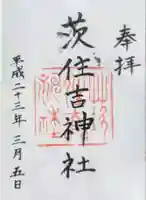 奉拝
茨住吉神社
平成二十三年三月五日